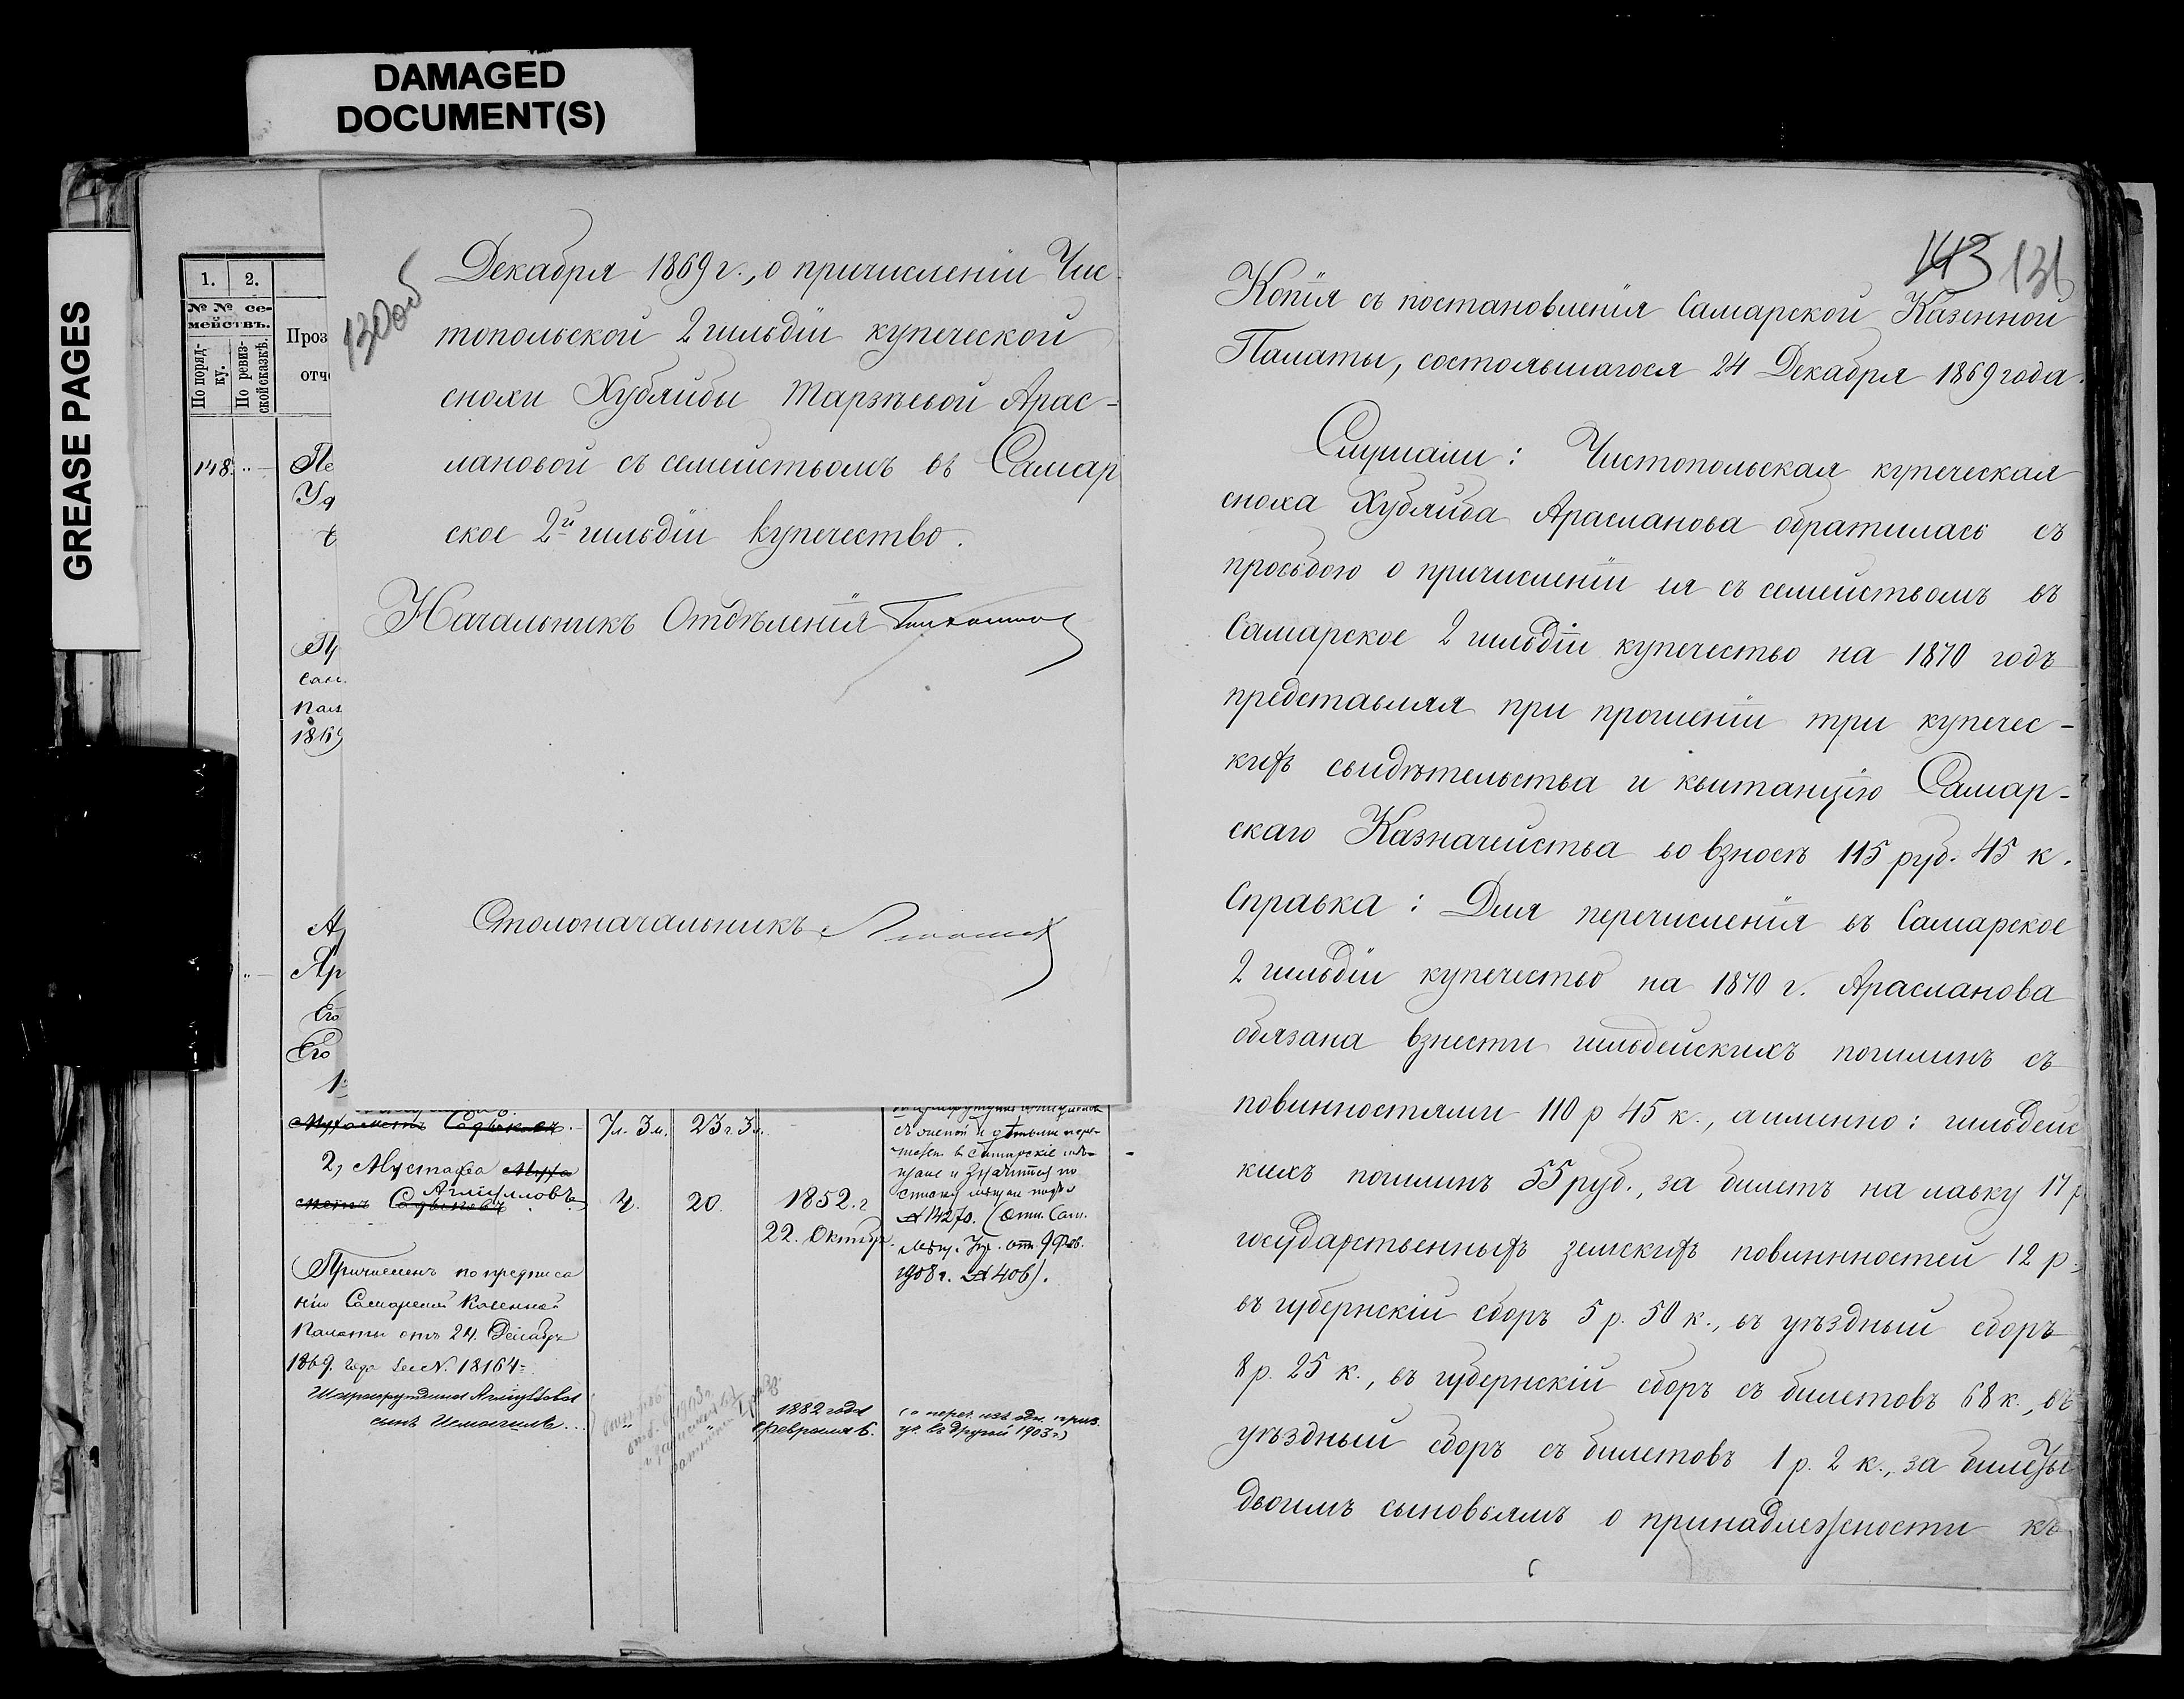 DAMAGED
DOCUMENT(S)
GREASE PAGES
130об
Декабря 1869 г., о причисленіи Чис-
топольской 2 гильдіи купеческой
снохи Хубяибы Тарзѣевой Арас-
лановой съ семействомъ въ Самар
ское 2й гильдіи купечество.
Начальникъ Отдѣленія
Столоначальникъ
1. 2.
№ № се-
мействъ.
По поряд-
ку.
По ревиз-
ской сказкѣ.
Проз
отч
148.
Пе
Пу
Сам.
Пал
1869
Ар
Его
Его
Мухаметъ Садыковъ. 7л. 3м. 23г. 3м.
2, Мустафа Муха
метъ Садыковъ 4. 20. 1852. г
22. Октбр.
№ 14270. (Отн. Сам.
Мѣщ. Упр. отъ 9 Фев.
1908 г. № 406).
Причисленъ по предписа
нію Самарской Казенной
Палаты отъ 24 Декабря
1869. года за N. 18164=
сынъ Исмагилъ...
1882 года
Февраля 6.
въ другой 1903 г)
143 131
Копія съ постановленія Самарской Казенной
Палаты, состоявшагося 24 Декабря 1869 года.
Слушали: Чистопольская купеческая
сноха Хубяиба Арасланова обратилась съ
просьбою о причисленіи ея съ семействомъ въ
Самарское 2 гильдіи купечество на 1870 годъ
представляя при прошеніи три купечес-
кихъ свидѣтельства и квитанцію Самар-
скаго Казначейства во взносѣ 115 руб. 45 к.
Справка: Для перечисленія въ Самарское
2 гильдіи купечество на 1870 г. Арасланова
обязана взнести гильдейскихъ пошлинъ съ
повинностями 110 р 45 к., а именно: гильдейс
кихъ пошлинъ 55 руб., за билетъ на лавку 17 р
государственныхъ земскихъ повинностей 12 р.,
въ губернскій сборъ 5 р. 50 к., въ уѣздный сборъ
8 р. 25 к., въ губернскій сборъ съ билетовъ 68 к., въ
уѣздный сборъ съ билетовъ 1 р. 2 к., за билеты
двоимъ сыновьямъ о принадлежности къ